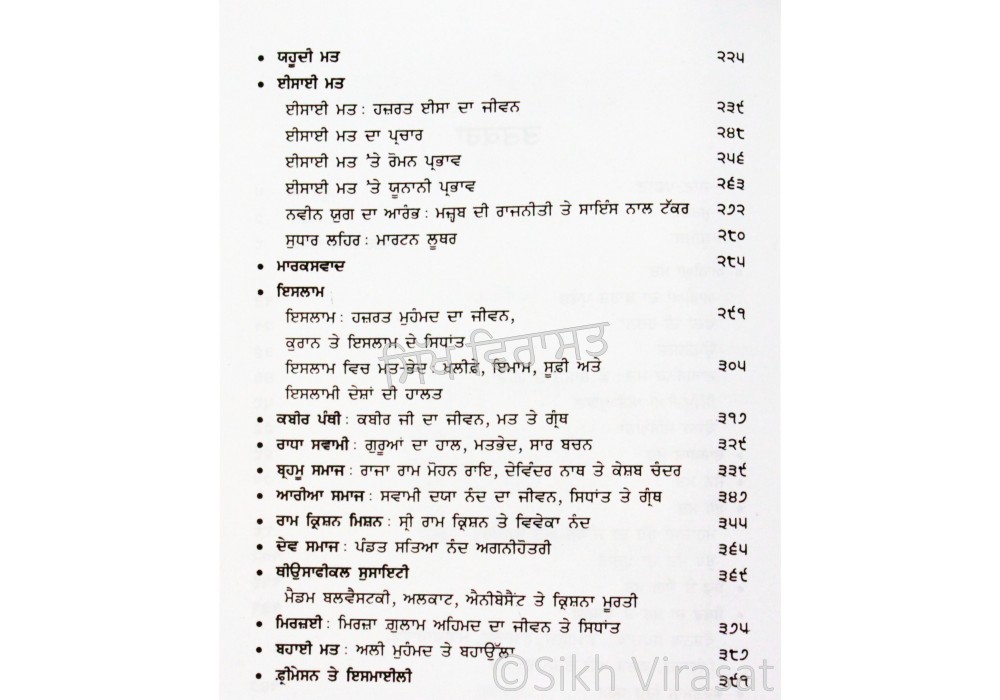 • ਯਹੂਦੀ ਮਤ ੨੨੫
• ਈਸਾਈ ਮਤ
ਈਸਾਈ ਮਤ : ਹਜ਼ਰਤ ਈਸਾ ਦਾ ਜੀਵਨ ੨੩੯
ਈਸਾਈ ਮਤ ਦਾ ਪ੍ਰਚਾਰ ੨੪੮
ਈਸਾਈ ਮਤ 'ਤੇ ਰੋਮਨ ਪ੍ਰਭਾਵ ੨੫੬
ਈਸਾਈ ਮਤ 'ਤੇ ਯੂਨਾਨੀ ਪ੍ਰਭਾਵ ੨੬੩
ਨਵੀਨ ਯੁਗ ਦਾ ਆਰੰਭ : ਮਜ਼੍ਹਬ ਦੀ ਰਾਜਨੀਤੀ ਤੇ ਸਾਇੰਸ ਨਾਲ ਟੱਕਰ ੨੭੨
ਸੁਧਾਰ ਲਹਿਰ : ਮਾਰਟਨ ਲੂਥਰ ੨੮੦
• ਮਾਰਕਸਵਾਦ ੨੮੫
• ਇਸਲਾਮ
ਇਸਲਾਮ : ਹਜ਼ਰਤ ਮੁਹੰਮਦ ਦਾ ਜੀਵਨ, ੨੯੧
ਕੁਰਾਨ ਤੇ ਇਸਲਾਮ ਦੇ ਸਿਧਾਂਤ
ਇਸਲਾਮ ਵਿਚ ਮਤ-ਭੇਦ : ਖ਼ਲੀਫ਼ੇ, ਇਮਾਮ, ਸੂਫ਼ੀ ਅਤੇ ੩੦੫
ਇਸਲਾਮੀ ਦੇਸ਼ਾਂ ਦੀ ਹਾਲਤ
• ਕਬੀਰ ਪੰਥੀ : ਕਬੀਰ ਜੀ ਦਾ ਜੀਵਨ, ਮਤ ਤੇ ਗ੍ਰੰਥ ੩੧੭
• ਰਾਧਾ ਸਵਾਮੀ : ਗੁਰੂਆਂ ਦਾ ਹਾਲ, ਮਤਭੇਦ, ਸਾਰ ਬਚਨ ੩੨੯
• ਬ੍ਰਹਮੂ ਸਮਾਜ : ਰਾਜਾ ਰਾਮ ਮੋਹਨ ਰਾਇ, ਦੇਵਿੰਦਰ ਨਾਥ ਤੇ ਕੇਸ਼ਬ ਚੰਦਰ ੩੩੯
• ਆਰੀਆ ਸਮਾਜ : ਸਵਾਮੀ ਦਯਾ ਨੰਦ ਦਾ ਜੀਵਨ, ਸਿਧਾਂਤ ਤੇ ਗ੍ਰੰਥ ੩੪੭
• ਰਾਮ ਕ੍ਰਿਸ਼ਨ ਮਿਸ਼ਨ : ਸ੍ਰੀ ਰਾਮ ਕ੍ਰਿਸ਼ਨ ਤੇ ਵਿਵੇਕਾ ਨੰਦ ੩੫੫
• ਦੇਵ ਸਮਾਜ : ਪੰਡਤ ਸਤਿਆ ਨੰਦ ਅਗਨੀਹੋਤਰੀ ੩੬੫
• ਥੀਉਸਾਫੀਕਲ ਸੁਸਾਇਟੀ ੩੬੯
ਮੈਡਮ ਬਲਵੈਸਟਕੀ, ਅਲਕਾਟ, ਐਨੀਬੇਸੈਂਟ ਤੇ ਕ੍ਰਿਸ਼ਨਾ ਮੂਰਤੀ
• ਮਿਰਜ਼ਈ : ਮਿਰਜ਼ਾ ਗ਼ੁਲਾਮ ਅਹਿਮਦ ਦਾ ਜੀਵਨ ਤੇ ਸਿਧਾਂਤ ੩੭੫
• ਬਹਾਈ ਮਤ : ਅਲੀ ਮੁਹੰਮਦ ਤੇ ਬਹਾਉੱਲਾ ੩੮੭
• ਫ੍ਰੀਮੇਸਨ ਤੇ ਇਸਮਾਈਲੀ ੩੯੧
ਸਿੱਖ ਵਿਰਾਸਤ
©Sikh Virasat